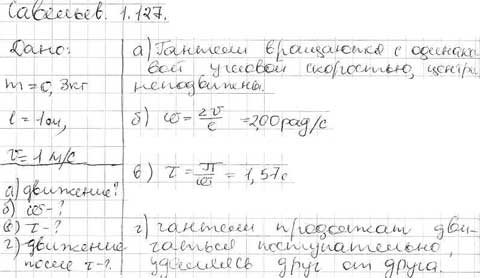 Савельев. 1.127.
Дано:
m=0,3кг
l=1ом,
v=1м/с
а) движение?
б) ω-?
в) τ-?
г) движение
после τ-?
а) Гантели вращаются с одинако
вой угловой скоростью, центры
неподвижны.
б) ω = 2v/l = 2,00рад/с
в) τ = π/ω = 1,57с
г) гантели продолжат дви-
гаться поступательно,
удаляясь друг от друга.